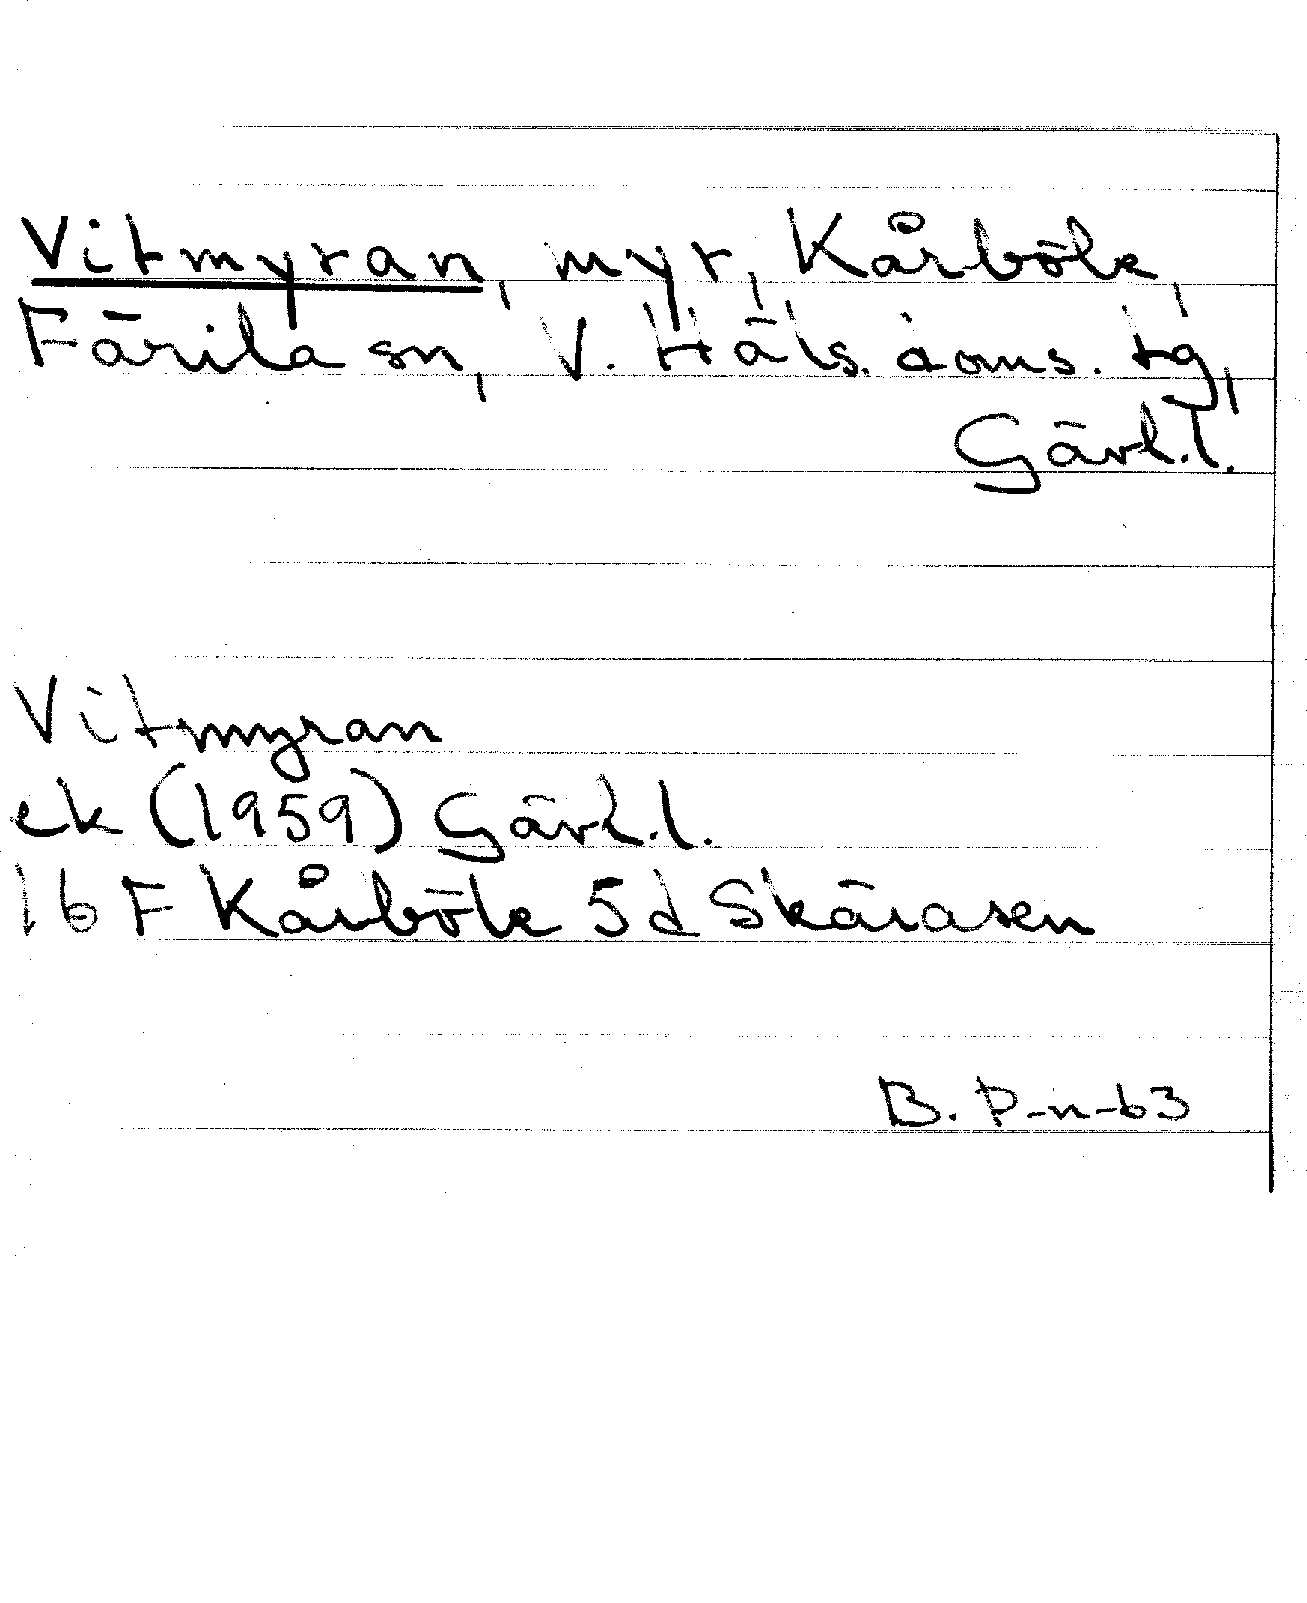 Vitmyran, myr, Kårböle,
Färila sn, V. Häls. doms. tg,
Gävl.l.
Vitmyran
ek (1959) Gävl.l.
16 F Kårböle 5d Skärasen
B. P-n-63